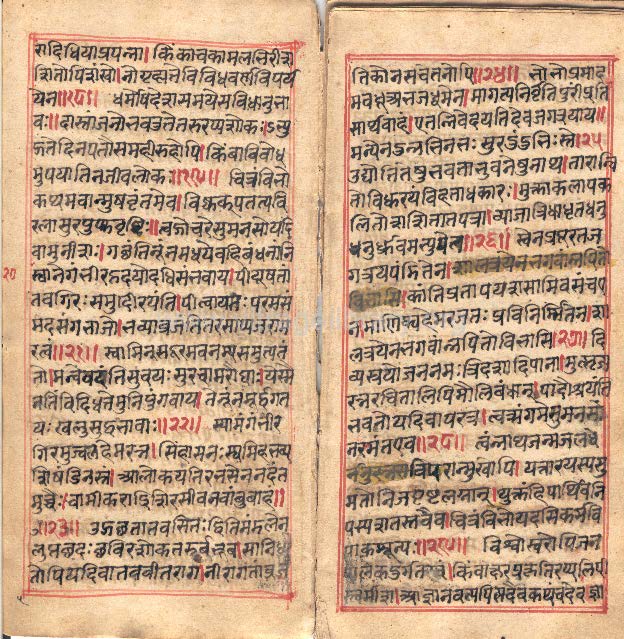 रादिधियाप्रपन्नाः। किंकाचकामलभिरीश
शितोपिशंखो। नोगृह्यतेविविधवर्णविपर्य
येन॥१८॥ धर्मोपदेशसमयेसविधानुभा
वाः। दास्तांजनोभवतितेतरुरप्यशोकः। ऽभ्यु
द्गतेदिनपतौसमहीरुहोपि। किंवाविबोध
मुपयातिनजीवलोकः॥१९॥ चित्रंविभो
कथमवाङ्मुखवृंतमेव। विष्वक्पतत्यवि
रलासुरपुष्पवृष्टिः। त्वद्गोचरेसुमनसांयदि
वामुनीश। गच्छंतिनूनमधएवहिबंधनानि
२० स्थानेगभीरहृदयोदधिसंभवायाः। पीयूषतां
तवगिरः समुदीरयंति। पीत्वायतः परमसं
मदसंगभाजो। भव्याव्रजंतितरसाप्यजराम
रत्वं॥२१॥ स्वामिन्सुदूरमवनम्यसमुत्पतं
तो। मन्येवदंतिशुचयः सुरचामरौघाः। येस्मै
नतिंविदधतेमुनिपुंगवाय। तेनूनमूर्ध्वगत
यः खलुशुद्धभावाः॥२२॥ श्यामंगभीर
गिरमुज्वलहेमरत्न। सिंहासनस्थमिहभव्य
शिखंडिनस्त्वां। आलोकयंतिरभसेननदंत
मुच्चैः। चामीकराद्रिशिरसीवनवांबुवाहं॥
॥२३॥ उद्गच्छतातवसितद्युतिमंडलेन
लुप्तच्छदच्छविरशोकतरुर्बभूव। सांनिध्य
तोपियदिवातववीतराग। नीरागतांव्रज
तिकोनसचेतनोपि॥२४॥ भोभोप्रमाद
मवधूयभजध्वमेन। मागत्यनिर्वृतिपुरींप्रति
सार्थवाहं। एतन्निवेदयतिदेवजगत्रयाय।
मन्येनदन्नभिनभः सुरदुंदुभिस्ते॥२५
उद्योतितेषुभवताभुवनेषुनाथ। तारान्वि
तोविधुरयंविहताधिकारः। मुक्ताकलापक
लितोरुसितातपत्र। व्याजात्रिधाधृततनु
र्ध्रुवमभ्युपेतः॥२६॥ स्वेनप्रपूरितज
गत्रयपिंडितेन।
कांतिप्रतापयशसामिवसंचये
न। माणिक्यहेमरजतप्रविनिर्मितेन। शा
लत्रयेनभगवन्नभितोविभासि॥२७॥ दि
व्यस्रजोजिननमत्रिदशाधिपाना। मुत्सृज्य
रत्नरचितानपिमौलिबंधान्। पादौश्रयंति
भवतोयदिवापरत्र। त्वत्संगमेसुमनसो
नरमंतएव॥२८॥ त्वंनाथजन्मजलधे
र्विपराङ्मुखोपि। यत्तारयस्यसु
मतोनिजपृष्टलग्नान्। युक्तंहिपार्थिवनि
पस्यसतस्तवैव। चित्रंविभोयदसिकर्मवि
पाकशून्यः॥२९॥ विश्वेश्वरोपिजन
पालकदुर्गतस्त्वं। किंवाक्षरप्रकृतिरप्यलिपि
स्त्वमीश। अज्ञानवत्यपिसदैवकथंचिदेव। ज्ञा